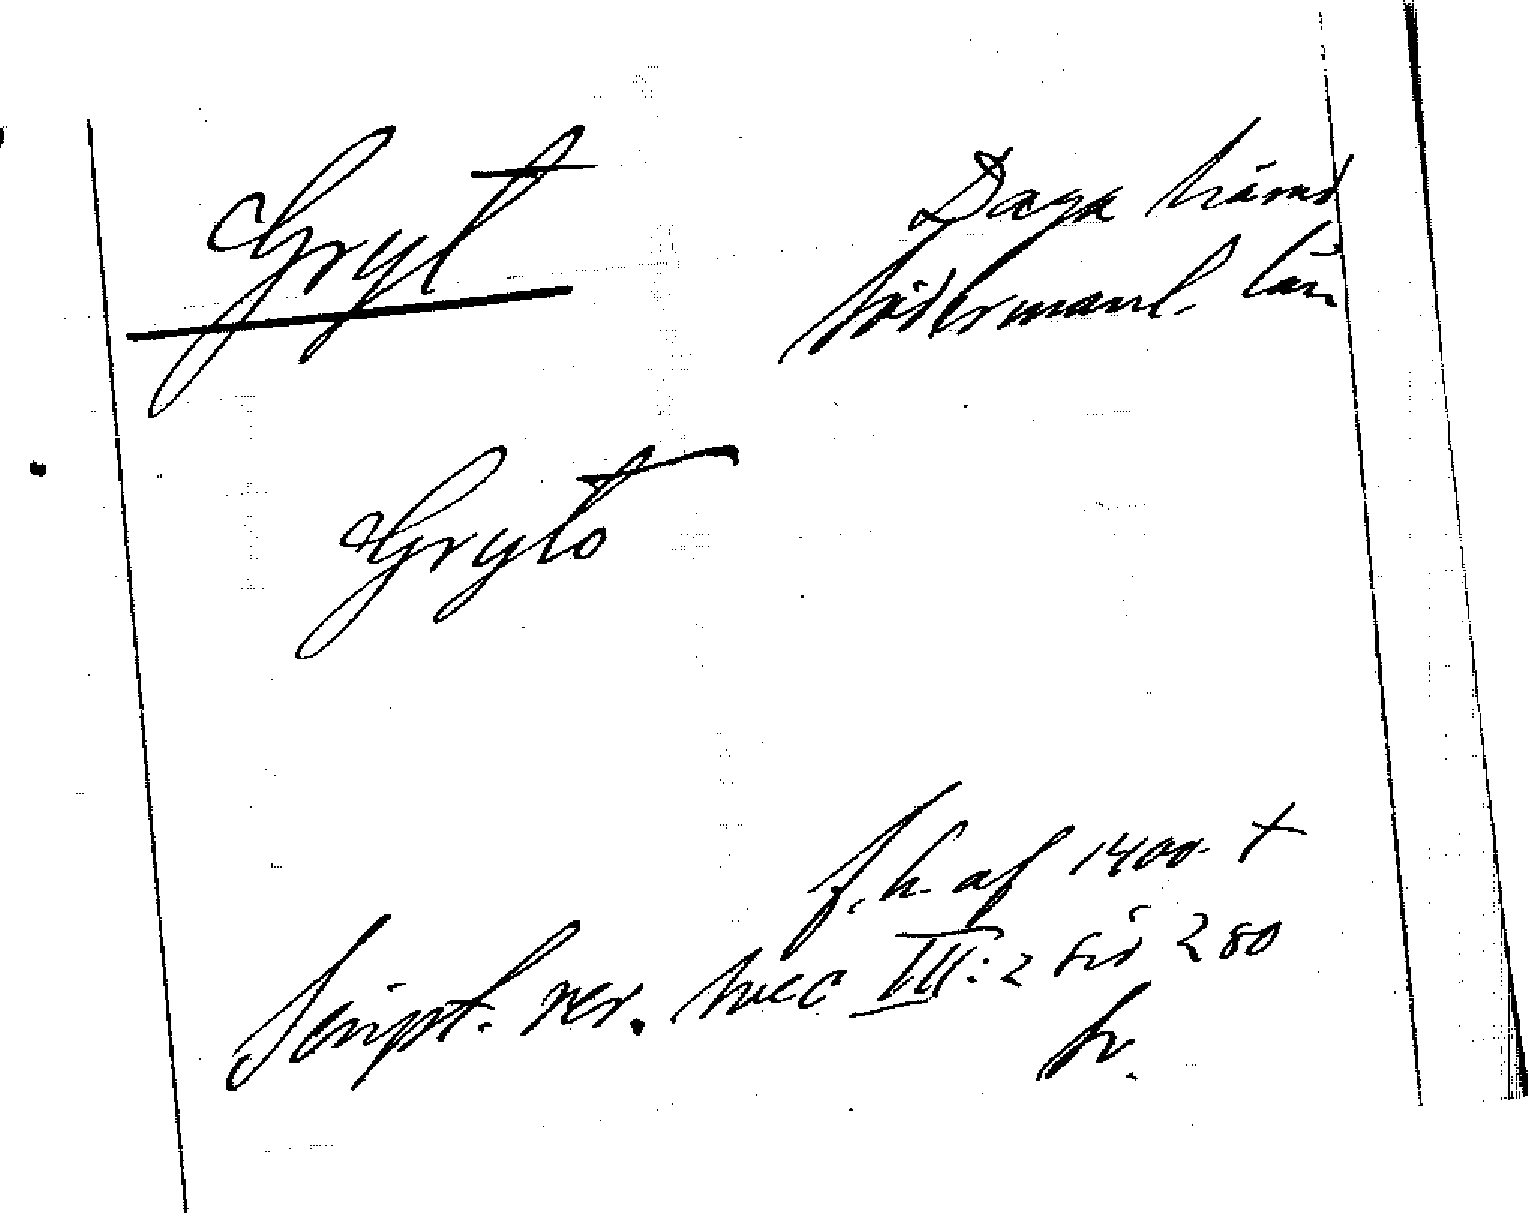 Gryt
Daga härad
Södermanl. län
Gryto
f. h. af 1400- t
Script. rer. svec III: 2 sid 280
hr.